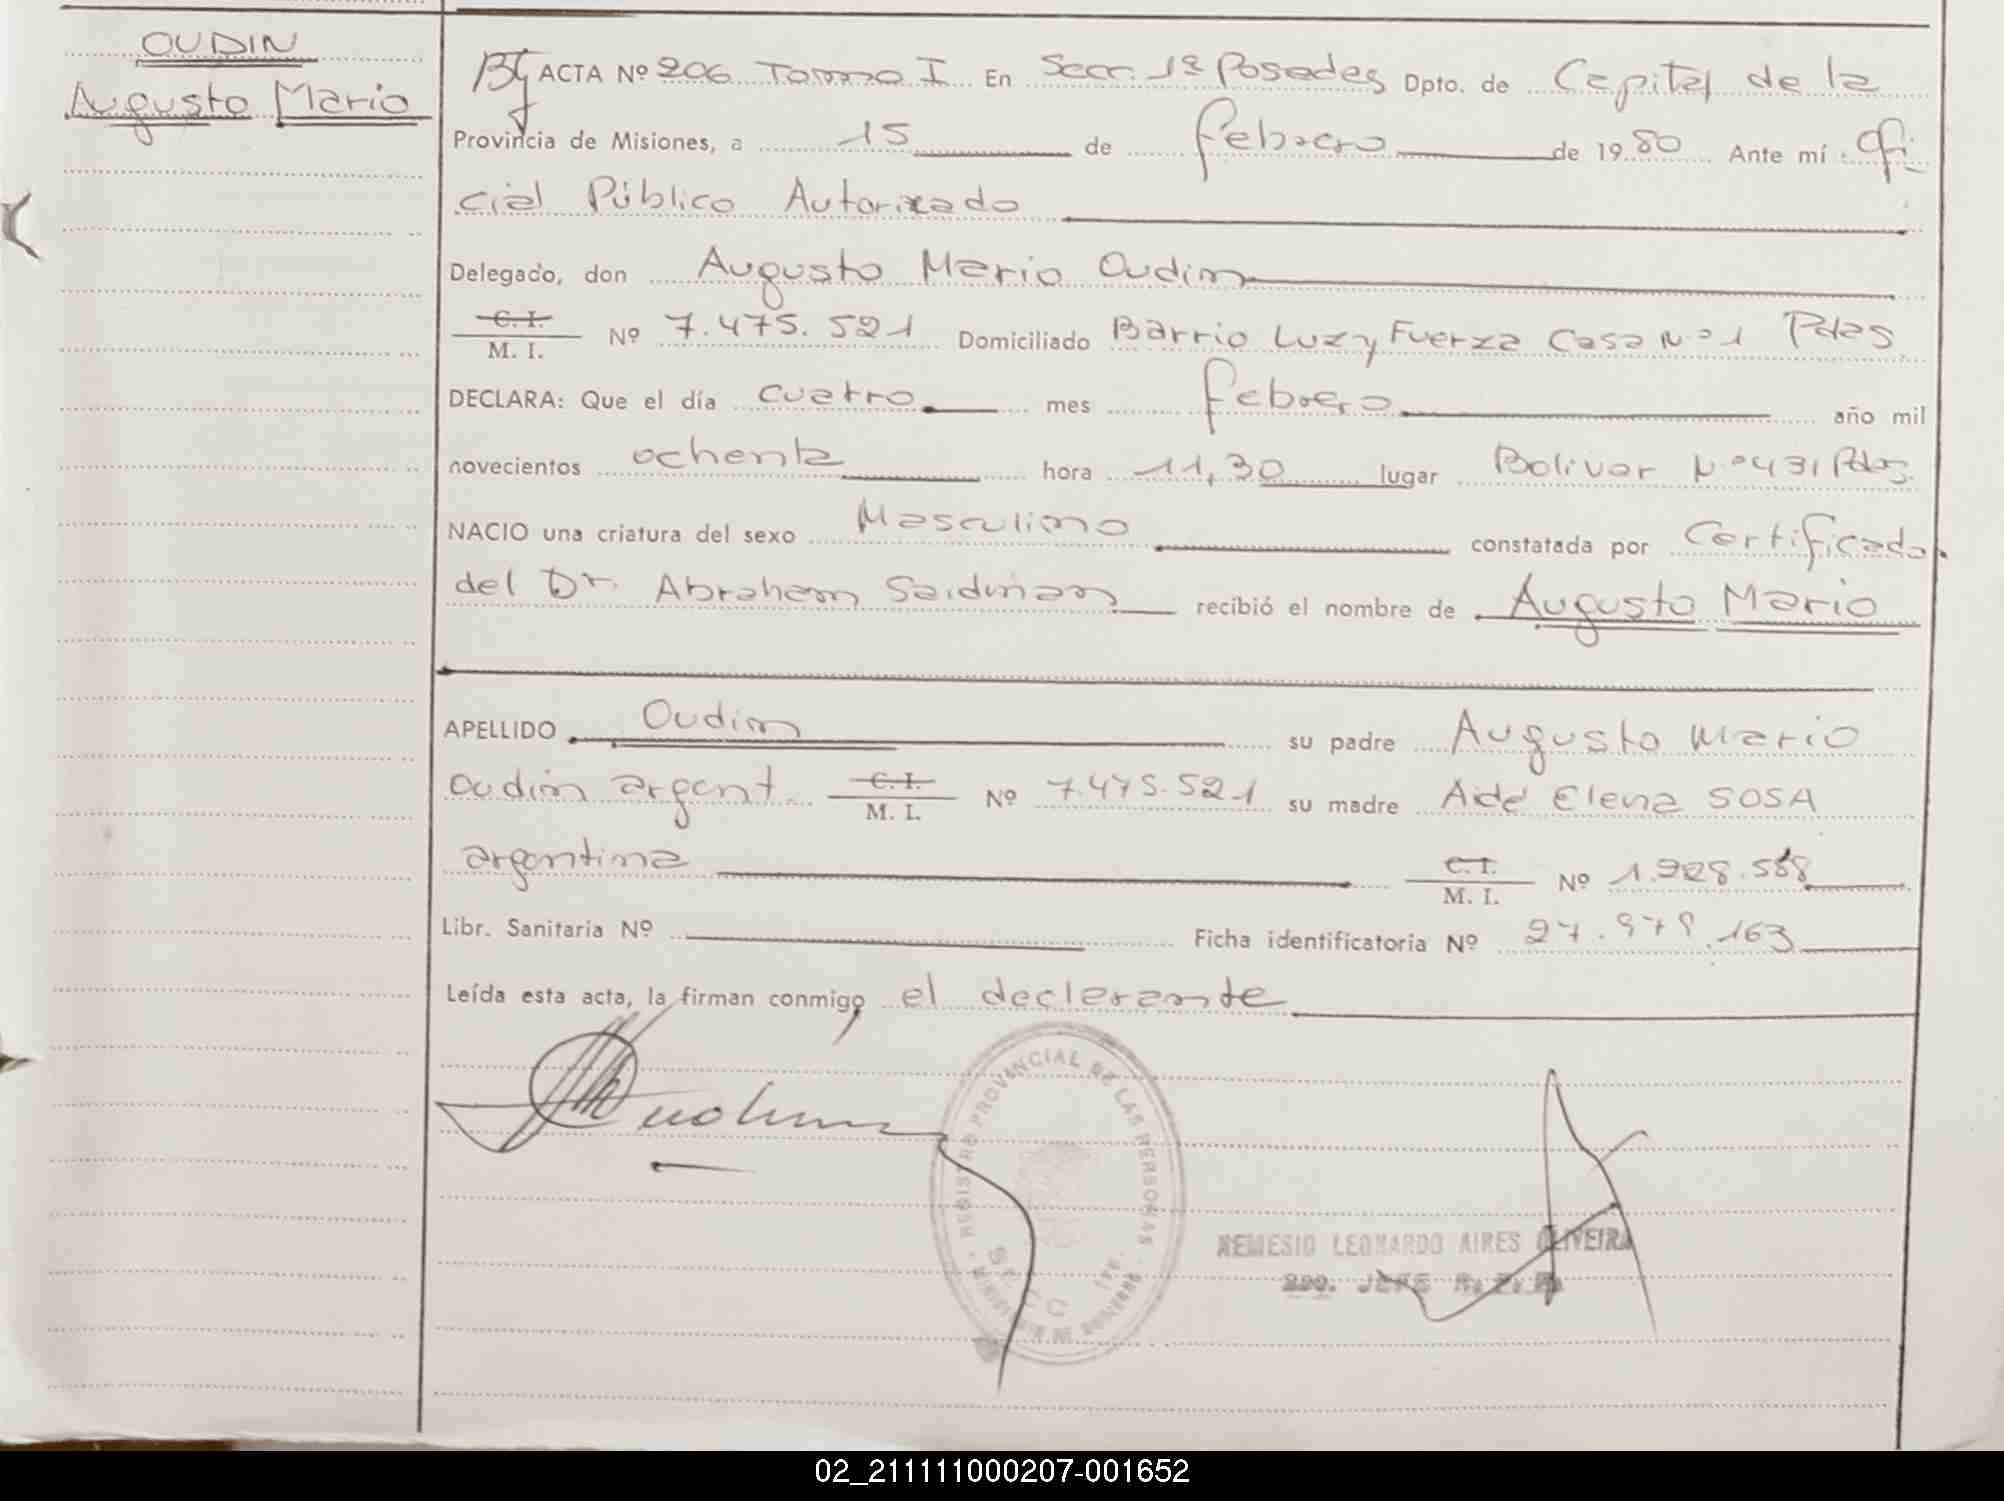 OUDIN
Augusto Mario
ACTA Nº 206 Tomo I En Secc. 1ª Posadas Dpto. de Capital de la
Provincia de Misiones, a 15 de febrero de 1980 Ante mí Ofi
cial Público Autorizado
Delegado, don Augusto Mario Oudin
C. I.
M. I. Nº 7.475.521 Domiciliado Barrio Luz y Fuerza Casa Nº 1 Pdas
DECLARA: Que el día cuatro mes febrero año mil
novecientos ochenta hora 11,30 lugar Bolivar Nº 431 Pdas.
NACIO una criatura del sexo Masculino constatada por Certificado
del Dr. Abraham Saidman recibió el nombre de Augusto Mario
APELLIDO Oudin su padre Augusto Mario
Oudin argent. C. I.
M. I. Nº 7.475.521 su madre Aidé Elena SOSA
argentina C. I.
M. I. Nº
Libr. Sanitaria Nº Ficha identificatoria Nº
Leída esta acta, la firman conmigo el declarante
REGISTRO PROVINCIAL DE LAS PERSONAS
NEMESIO LEONARDO AIRES OLIVEIRA
JEFE R. P. P.
02_211111000207-001652